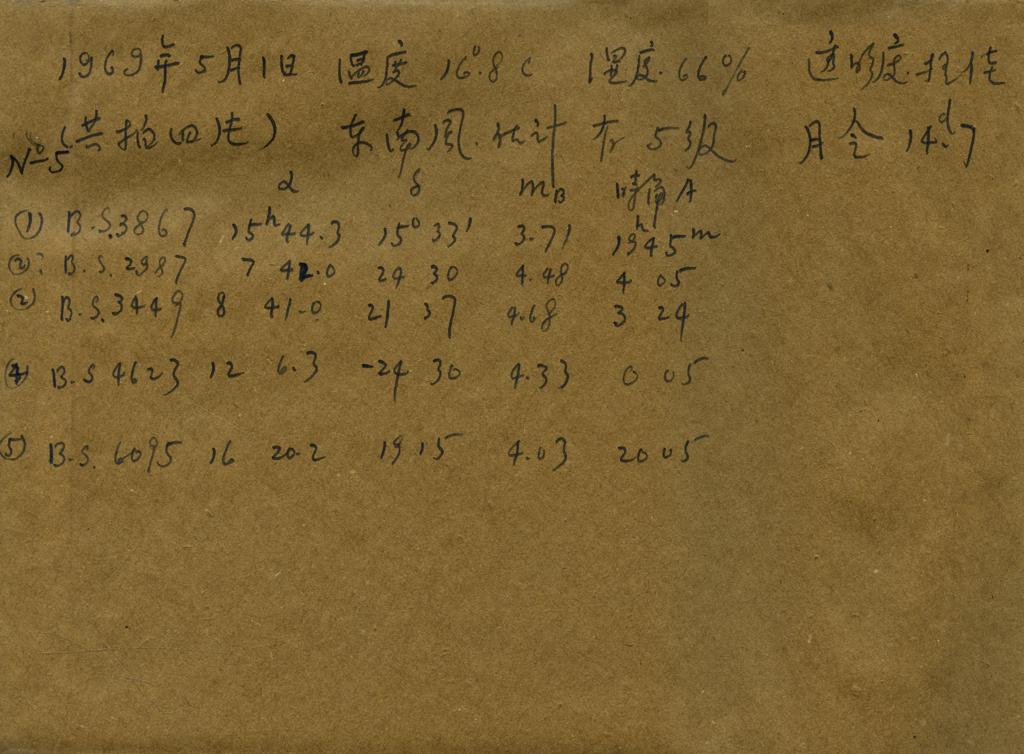 1969年5月1日 温度 16°.8 C 湿度 66% 透明度极佳
(共拍四片) 东南风 估计有5级 月令 14.ᵈ7
Nº5
α δ mB 时角 A
① B.S.3867 15ʰ 44.3 15° 33′ 3.71 19ʰ45ᵐ
②: B.S.2987 7 42.0 24 30 4.48 4 05
② B.S.3449 8 41.0 21 37 4.68 3 24
④ B.S 4623 12 6.3 -24 30 4.33 0 05
⑤ B.S. 6095 16 20.2 19 15 4.03 20 05